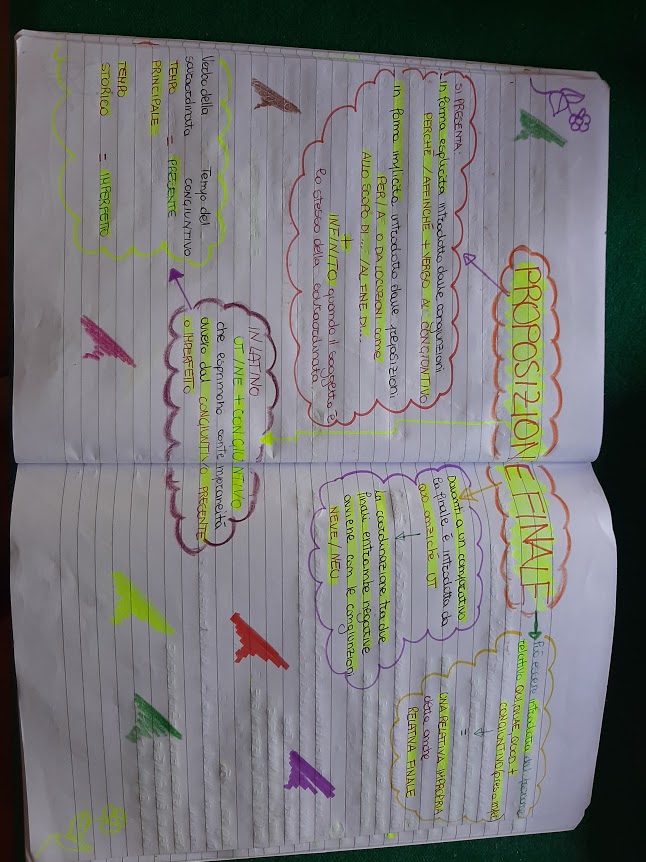 PROPOSIZIONE FINALE
SI PRESENTA:
- In forma esplicita introdotta dalle congiunzioni
PERCHÉ / AFFINCHÉ + VERBO AL CONGIUNTIVO
In forma implicita introdotta dalle preposizioni
PER / A O DA LOCUZIONI COME
ALLO SCOPO DI... / AL FINE DI...
+
INFINITO quando il soggetto è
lo stesso della sovraordinata
IN LATINO
UT / NE + CONGIUNTIVO
che esprimono contemporaneità
ovvero dal CONGIUNTIVO PRESENTE
o IMPERFETTO
Verbo della Tempo del
sovraordinata CONGIUNTIVO
TEMPO = PRESENTE
PRINCIPALE
TEMPO
STORICO = IMPERFETTO
Davanti a un comparativo
la finale è introdotta da
quo anziché UT
La coordinazione tra due
finale entrambe negative
avviene con le congiunzioni
NEVE / NEU
Può essere introdotta dal pronome
relativo QUI, QUAE, QUOD +
CONGIUNTIVO
=
UNA RELATIVA IMPROPRIA
detta anche
RELATIVA FINALE